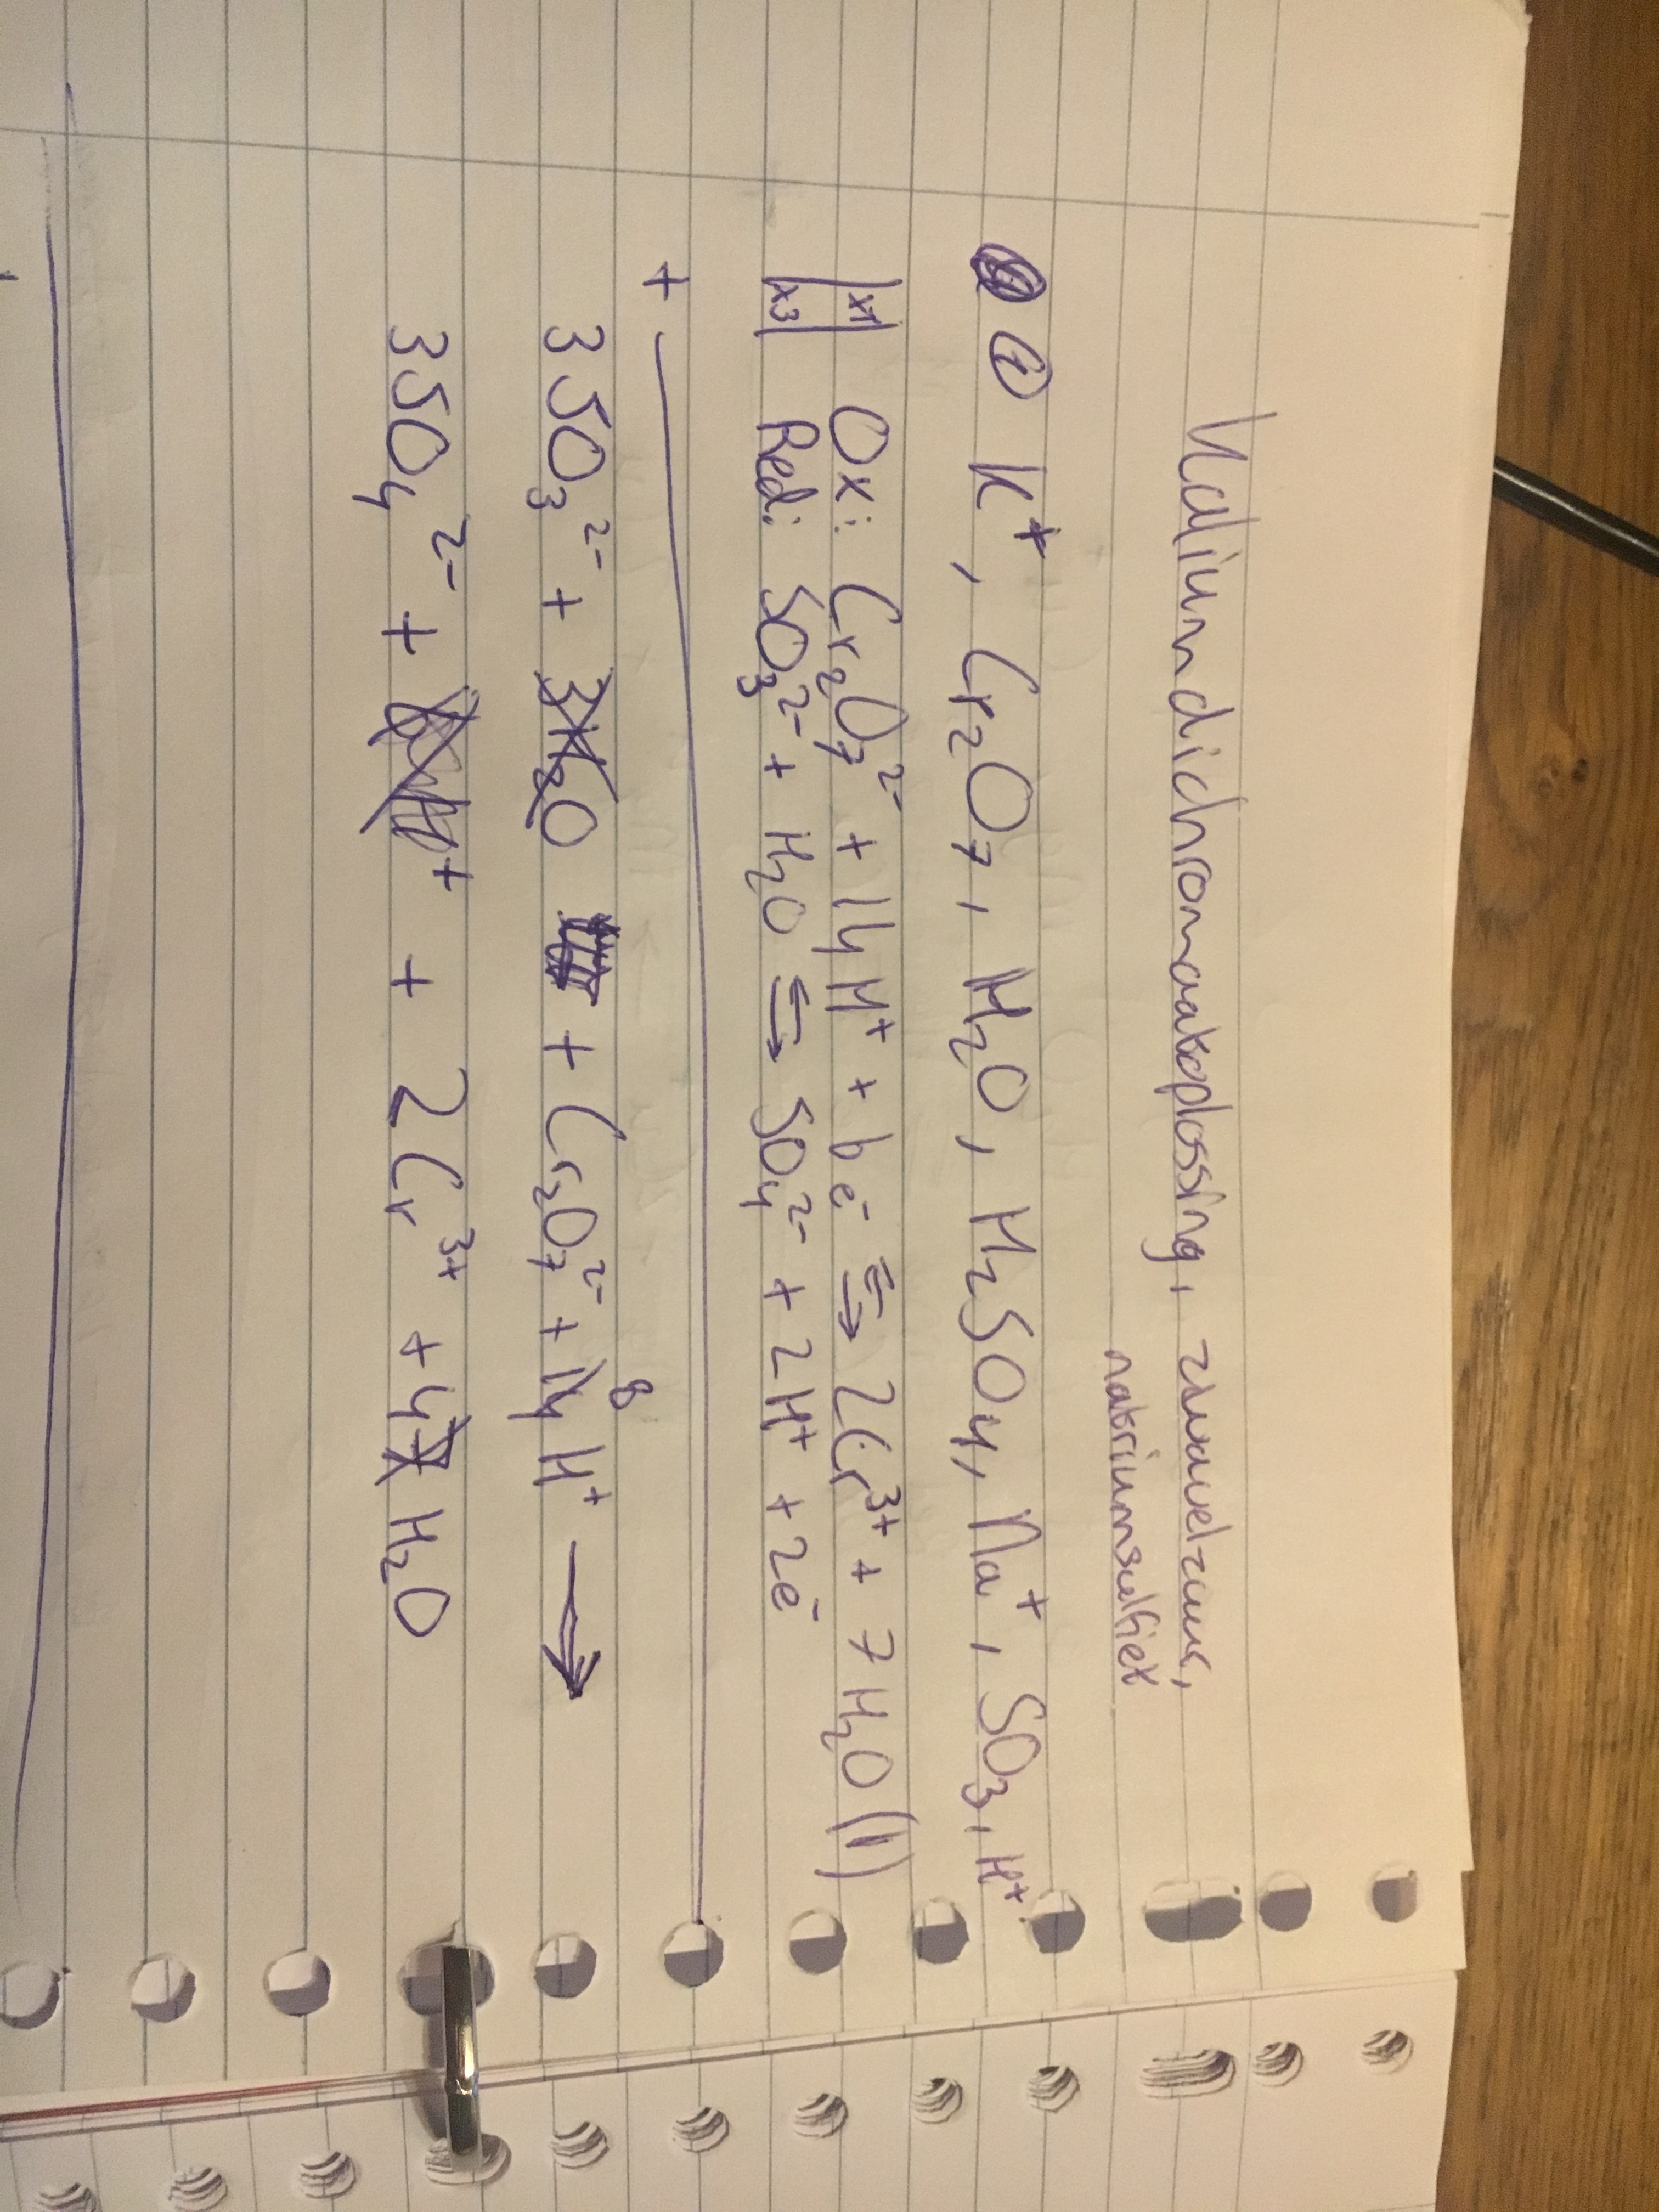 Kaliumdichromaatoplossing, zwavelzuur,
natriumsulfiet
① K⁺, Cr₂O₇, H₂O, H₂SO₄, Na⁺, SO₃, H⁺
x1 Ox: Cr₂O₇²⁻ + 14H⁺ + 6e⁻ ⇆ 2Cr³⁺ + 7H₂O (l)
x3 Red: SO₃²⁻ + H₂O ⇆ SO₄²⁻ + 2H⁺ + 2e⁻
+
8
3SO₃²⁻ + 3H₂O + Cr₂O₇²⁻ + 14H⁺ →
3SO₄²⁻ + 6H⁺ + 2Cr³⁺ + 4 7 H₂O